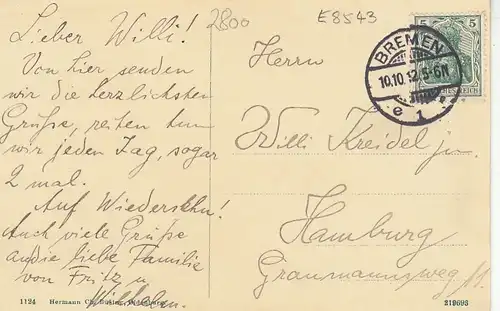 2800
E 8543
Lieber Willi!
Von hier senden
wir die herzlichsten
Grüße, reiten tun
wir jeden Tag, sogar
2 mal.
Auf Wiedersehn!
Auch viele Grüße
an die liebe Familie
von Fritz u
Wilhelm.
Herrn
Willi Kreidel jr.
Hamburg
Graumannsweg 11.
5 5
BREMEN
10.10.12.5-6N
e 1
REICH
1124 Hermann
219693